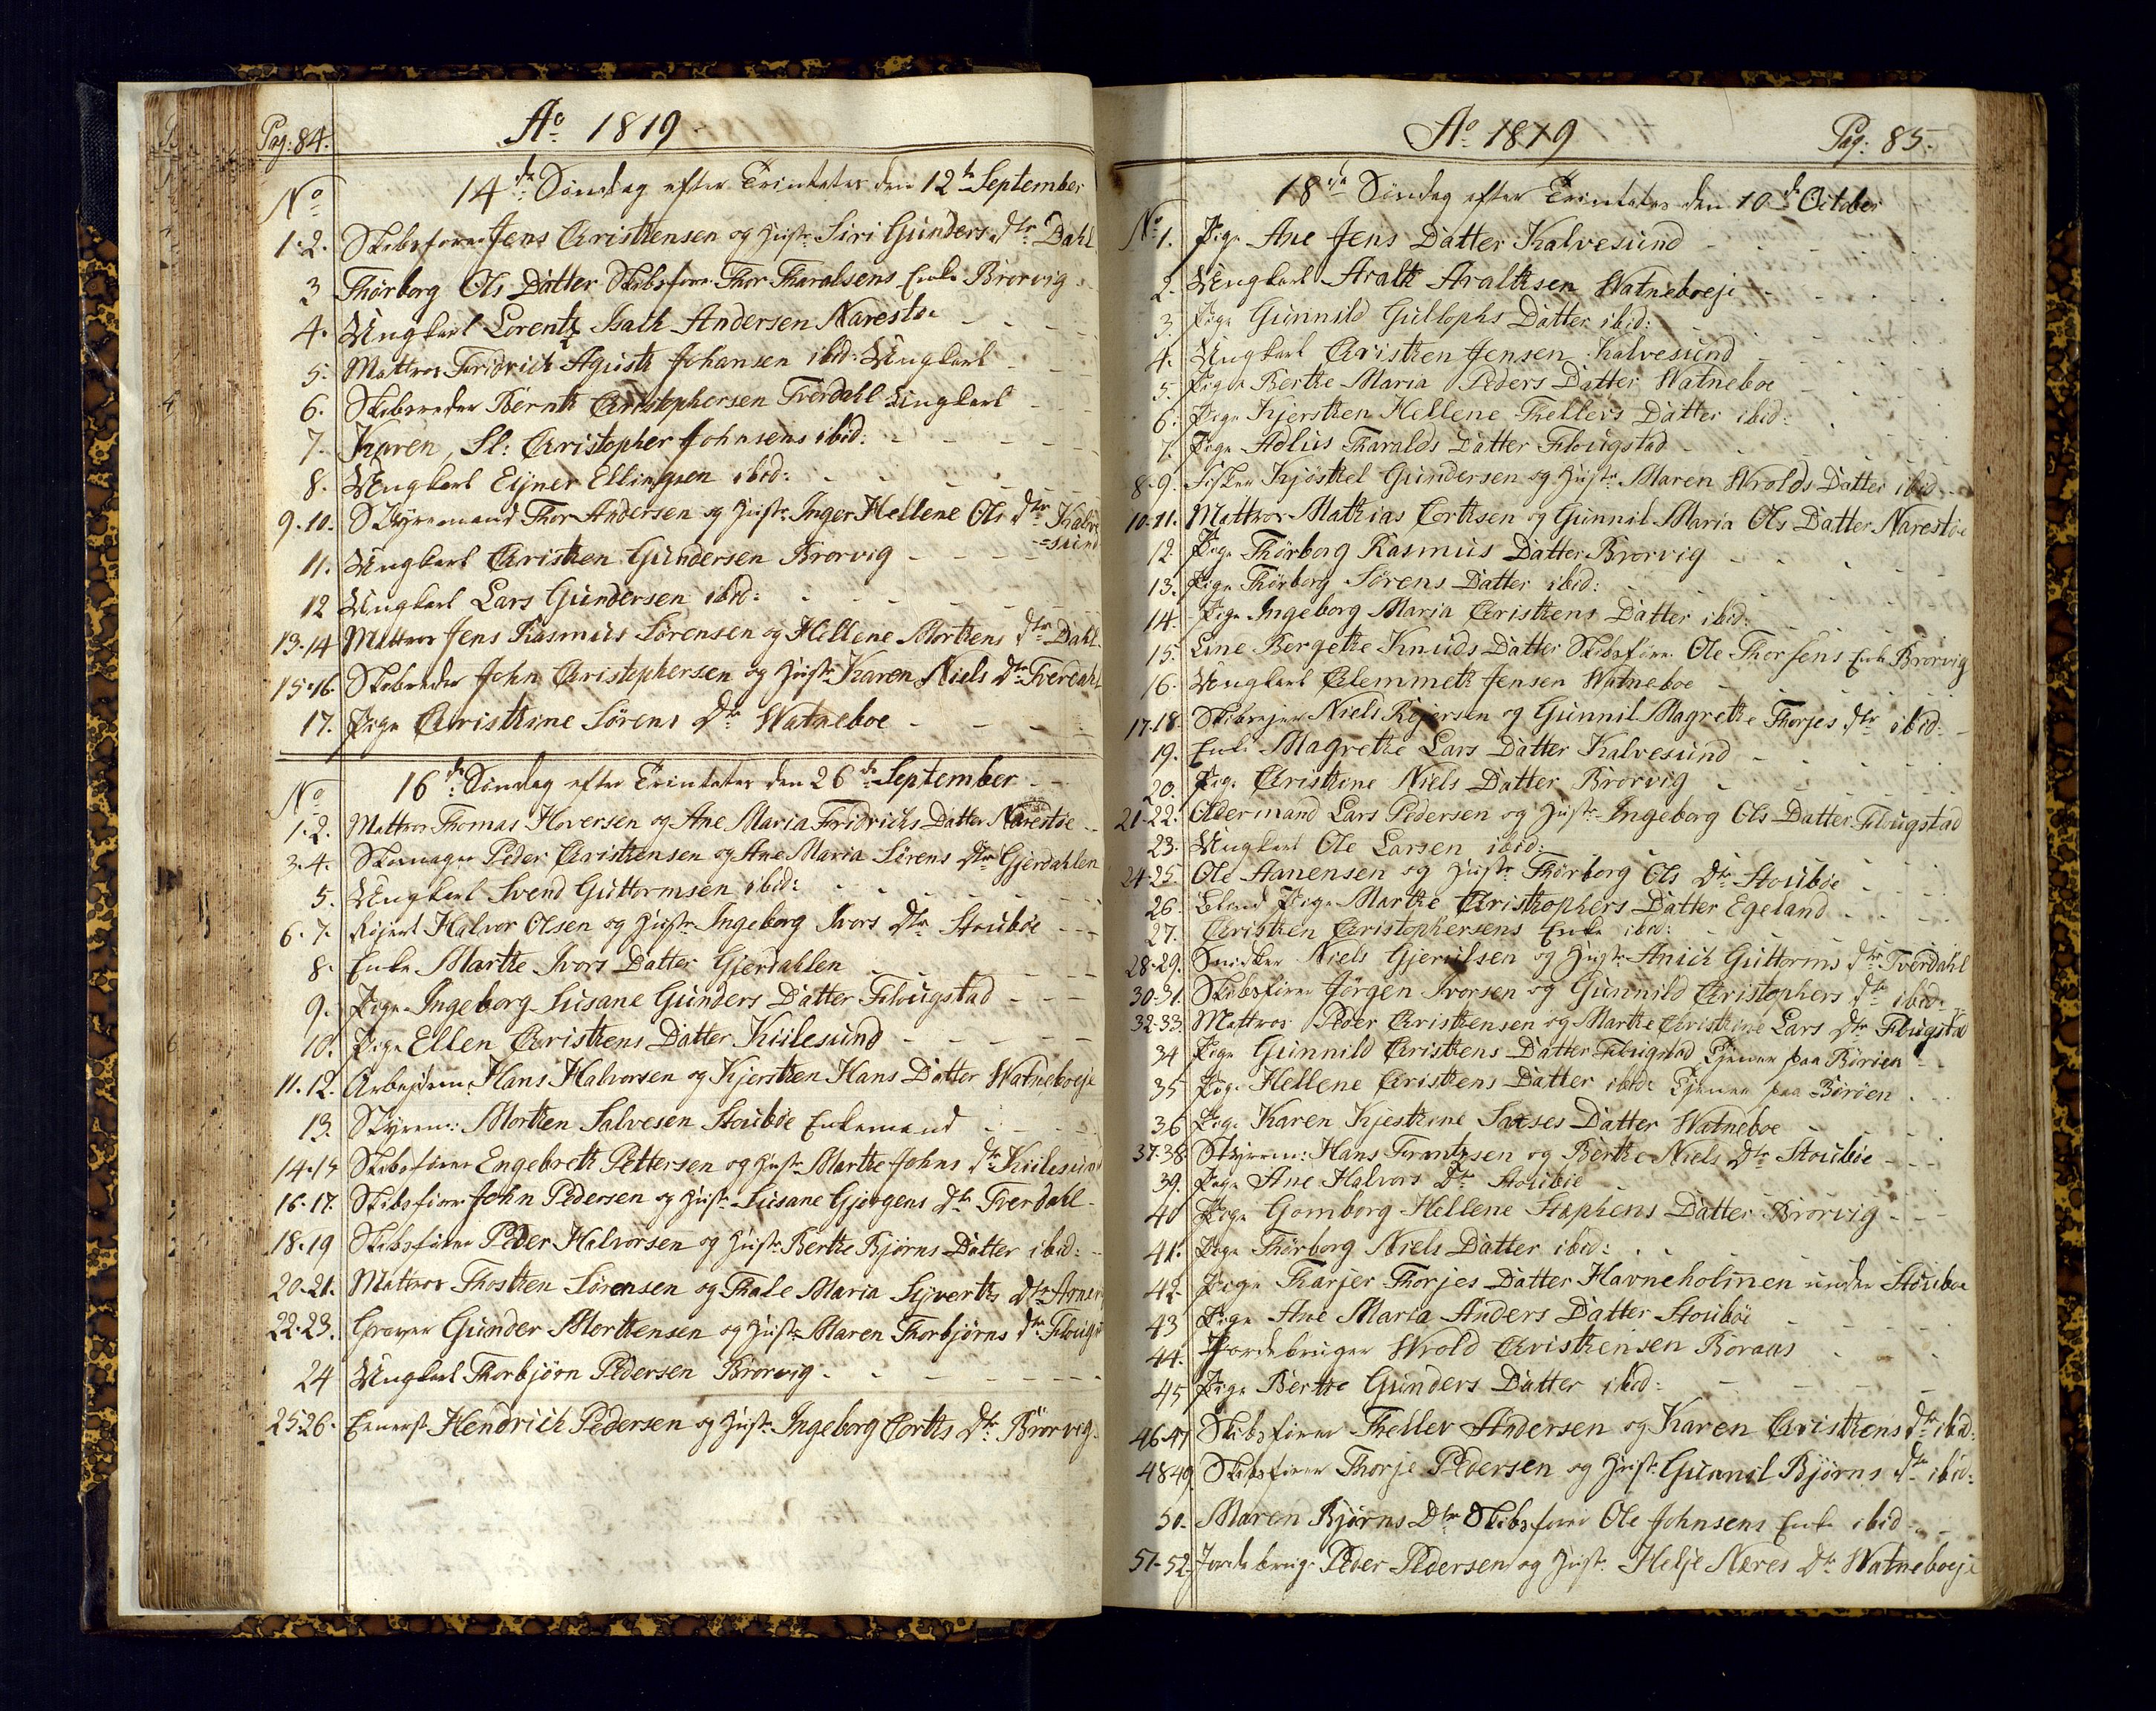 Pag: 84.
Ao 1819
No 14de Søndag efter Trinitatis den 12te September
1.2. Skibsfører Jens Christhensen og Hustr. Siri Gunders dtr Dahl
3 Thørborg Ols Datter Skibsfører Thor Tharalsens Enke Brørvig
4. Ungkarl Lorentz Isath Andersen Narestøe
5. Mattros Fridrich Agusth Johansen ibid: Ungkarl
6. Skibsreder Bernth Christophersen Tverdahl Ungkarl
7. Karen, Sl: Christopher Johnsens ibid:
8. Ungkarl Eijner Ellingsen ibid:
9.10. Styremand Thor Andersen og Hustr. Inger Hellene Ols dtr Kalve
=sund
11. Ungkarl Christhen Gundersen Brørvig
12 Ungkarl Lars Gundersen ibid:
13.14 Mattros Jens Rasmus Sørensen og Hellene Morthens dtr Dahl
15.16. Skibsreder John Christophersen og Hustr. Karen Niels Dtr Tverdahl
17. Pige Christhine Sørens Dtr Watneboe
No 16de Søndag efter Trinitatis den 26de September
1.2. Mattros Thomas Hoversen og Ane Maria Fridrichs Datter Narestøe
3.4. Skomager Peder Christhensen og Ane Maria Sørens Dtr Gjerdahlen
5. Ungkarl Svend Guttormsen ibid:
6.7. Halvor Olsen og Hustr. Ingeborg Ivors Dtr Stoubøe
8. Enke Marthe Ivors Datter Gjerdahlen
9. Pige Ingeborg Susane Gunders Datter Flougstad
10. Pige Ellen Christhens Datter Kiilesund
11.12. Arbejdsm: Hans Halvorsen og Kjersthen Hans Datter Watneboeje
13. Styrem: Morthen Salvesen Stoubøe Enkemand
14.15 Skibsfører Engebreth Pettersen og Hustr. Marthe Johns dtr Kiilesund
16.17. Skibsfører John Pedersen og Hustr. Susane Gjorgens Dtr Tverdahl
18.19 Skibsfører Peder Halvorsen og Hustr. Berthe Bjørns Datter ibid:
20.21. Matros Thosthen Sørensen og Thale Maria Syverths Dtr
22.23. Gunder Morthensen og Hustr. Maren Thorbjørns dtr
24 Ungkarl Thorbjørn Pedersen Brørvig
25.26. Hendrich Pedersen og Hustr. Ingeborg Corths Dtr Brørvig
Ao 1819 Pag: 85.
18de Søndag efter Trinitatis den 10de October
No 1. Pige Ane Jens Datter Kalvesund
2. Ungkarl Aralth Aralthsen Watneboeje
3. Pige Gunnild Gullophs Datter ibid:
4. Ungkarl Christhen Jensen Kalvesund
5. Pige Berthe Maria Peders Datter Watneboe
6. Pige Kjersthen Hellene Thellers Datter ibid:
7. Pige Adlus Tharalds Datter Flougstad
8.9. Fisker Kjøsthel Gundersen og Hustr. Maren Wrolds Datter ibid
10.11. Mattros Mathias Corthsen og Gunnil Maria Ols Datter Narestøe
12. Pige Thørborg Rasmus Datter Brørvig
13. Pige Thørborg Sørens Datter ibid:
14. Pige Ingeborg Maria Christhens Datter ibid:
15. Line Bergethe Knuds Datter Skibsfører Ole Thorsens Enke Brørvig
16. Ungkarl Clemmeth Jensen Watneboe
17.18. Skibsejer Niels Rejersen og Gunnil Magrethe Thorjes dtr ibid:
19. Enke Magrethe Lars Datter Kalvesund
20. Pige Christhine Niels Datter Brørvig
21.22. Oldermand Lars Pedersen og Hustr. Ingeborg Ols Datter Flougstad
23. Ungkarl Ole Larsen ibid:
24.25. Ole Aanensen og Hustr. Thørborg Ols Dtr Stoubøe
26. Blind Pige Marthe Christhophers Datter Egeland
27. Christhen Christophersens Enke ibid:
28.29. Snidker Niels Gjerulsen og Hustr. Anich Guttorms dtr Tverdahl
30.31. Skibsfører Jørgen Ivorsen og Gunnild Christophers dtr ibid:
32.33. Mattros Peder Christhensen og Marthe Christhine Lars Dtr Flougstad
34 Pige Gunnild Christhens Datter Flougstad Tjener paa Børøen
35 Pige Hellene Christhens Datter ibid: Tjener paa Børøen
36 Pige Karen Kjesthine Datter Watneboe
37.38 Styrem: Hans Frantzsen og Berthe Niels Dtr Stoubøe
39. Pige Ane Halvors Dtr Stoubøe
40 Pige Gomborg Hellene Stephens Datter Brørvig
41. Pige Thørborg Niels Datter ibid:
42. Pige Tharjer Thorjes Datter Havneholmen under Stoubøe
43 Pige Ane Maria Anders Datter Stoubøe
44. Jordebruger Wrold Christhensen Boraas
45 Pige Berthe Gunders Datter ibid:
46.47 Skibsfører Theller Andersen og Karen Christhens dtr ibid:
48.49. Skibsfører Thorje Pedersen og Hustr. Gunnil Bjørns dtr ibid:
50. Maren Bjørns Dtr Skibsfører Ole Johnsens Enke ibid
51-52. Jordebrug: Peder Pedersen og Hustr. Helje Næres Dtr Watneboeje